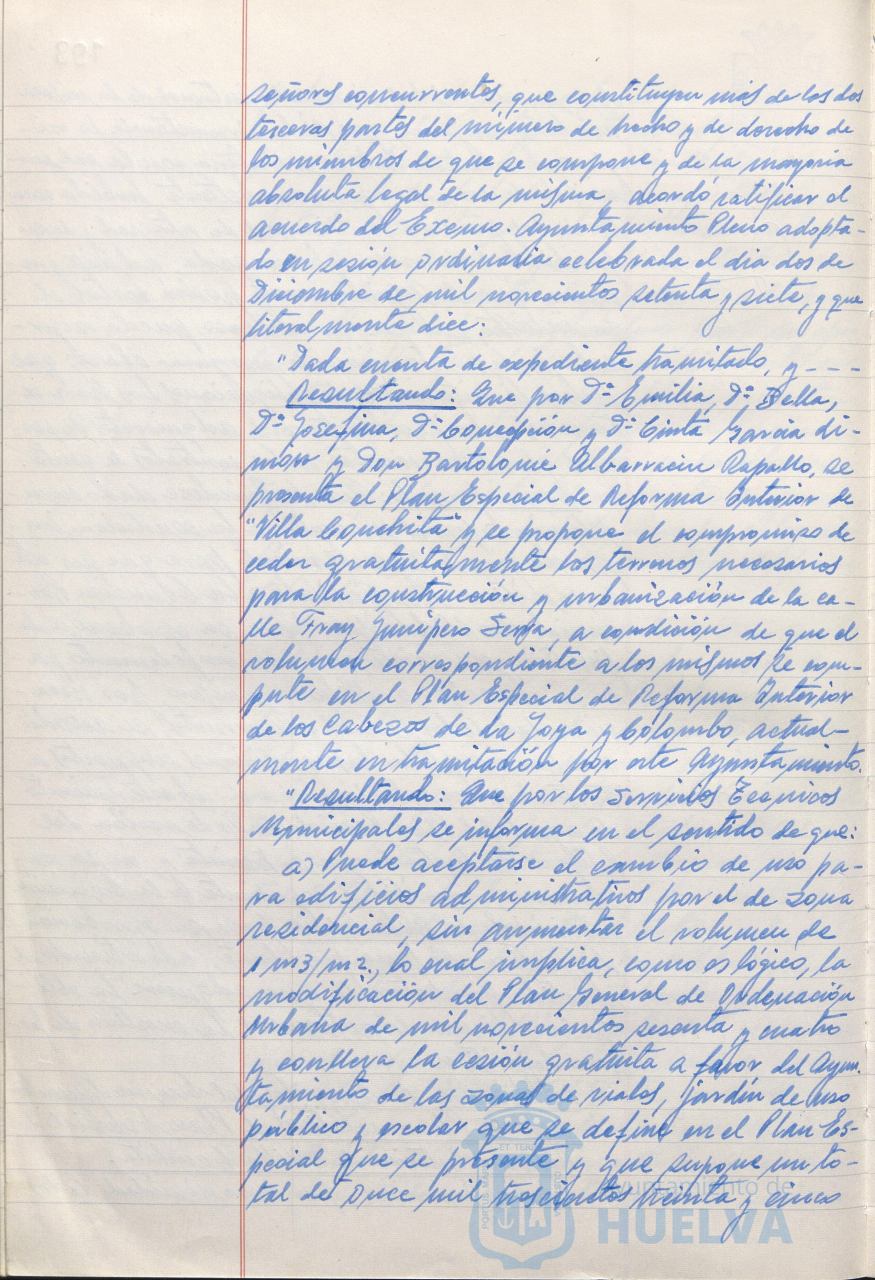 señores concurrentes, que constituyen más de los dos
terceras partes del número de hecho y de derecho de
los miembros de que se compone y de la mayoria
absoluta legal de la misma, acordó ratificar el
acuerdo del Excmo. Ayuntamiento Pleno adopta-
do en sesión ordinaria celebrada el dia dos de
Diciembre de mil novecientos setenta y siete, y que
literalmente dice:
"Dada cuenta de expediente tramitado, y - - - -
Resultando: Que por Dª Emilia, Dª Bella,
Dª Josefina, Dª Concepción y Dª Cinta Garcia
y Don Bartolomé Albarracin Rapallo, se
presenta el Plan Especial de Reforma Interior de
"Villa Conchita" y se propone el compromiso de
ceder gratuitamente los terrenos necesarios
para la construcción y urbanización de la ca-
lle Fray Junipero Serra, a condición de que el
volumen correspondiente a los mismos se com-
pute en el Plan Especial de Reforma Interior
de los Cabezos de La Joya y Colombo, actual-
mente en tramitación por este Ayuntamiento.
"Resultando: Que por los Servicios Tecnicos
Municipales se informa en el sentido de que:
a) Puede aceptarse el cambio de uso pa-
ra edificios administrativos por el de zona
residencial, sin aumentar el volumen de
1 m3/m2., lo cual implica, como es lógico, la
modificación del Plan General de Ordenación
Urbana de mil novecientos sesenta y cuatro
y conlleva la cesión gratuita a favor del Ayun-
tamiento de las zonas de viales, jardín de uso
público y escolar que se define en el Plan Es-
pecial que se presente y que supone un to-
tal de once mil trescientos treinta y cinco
Ayuntamiento de
HUELVA